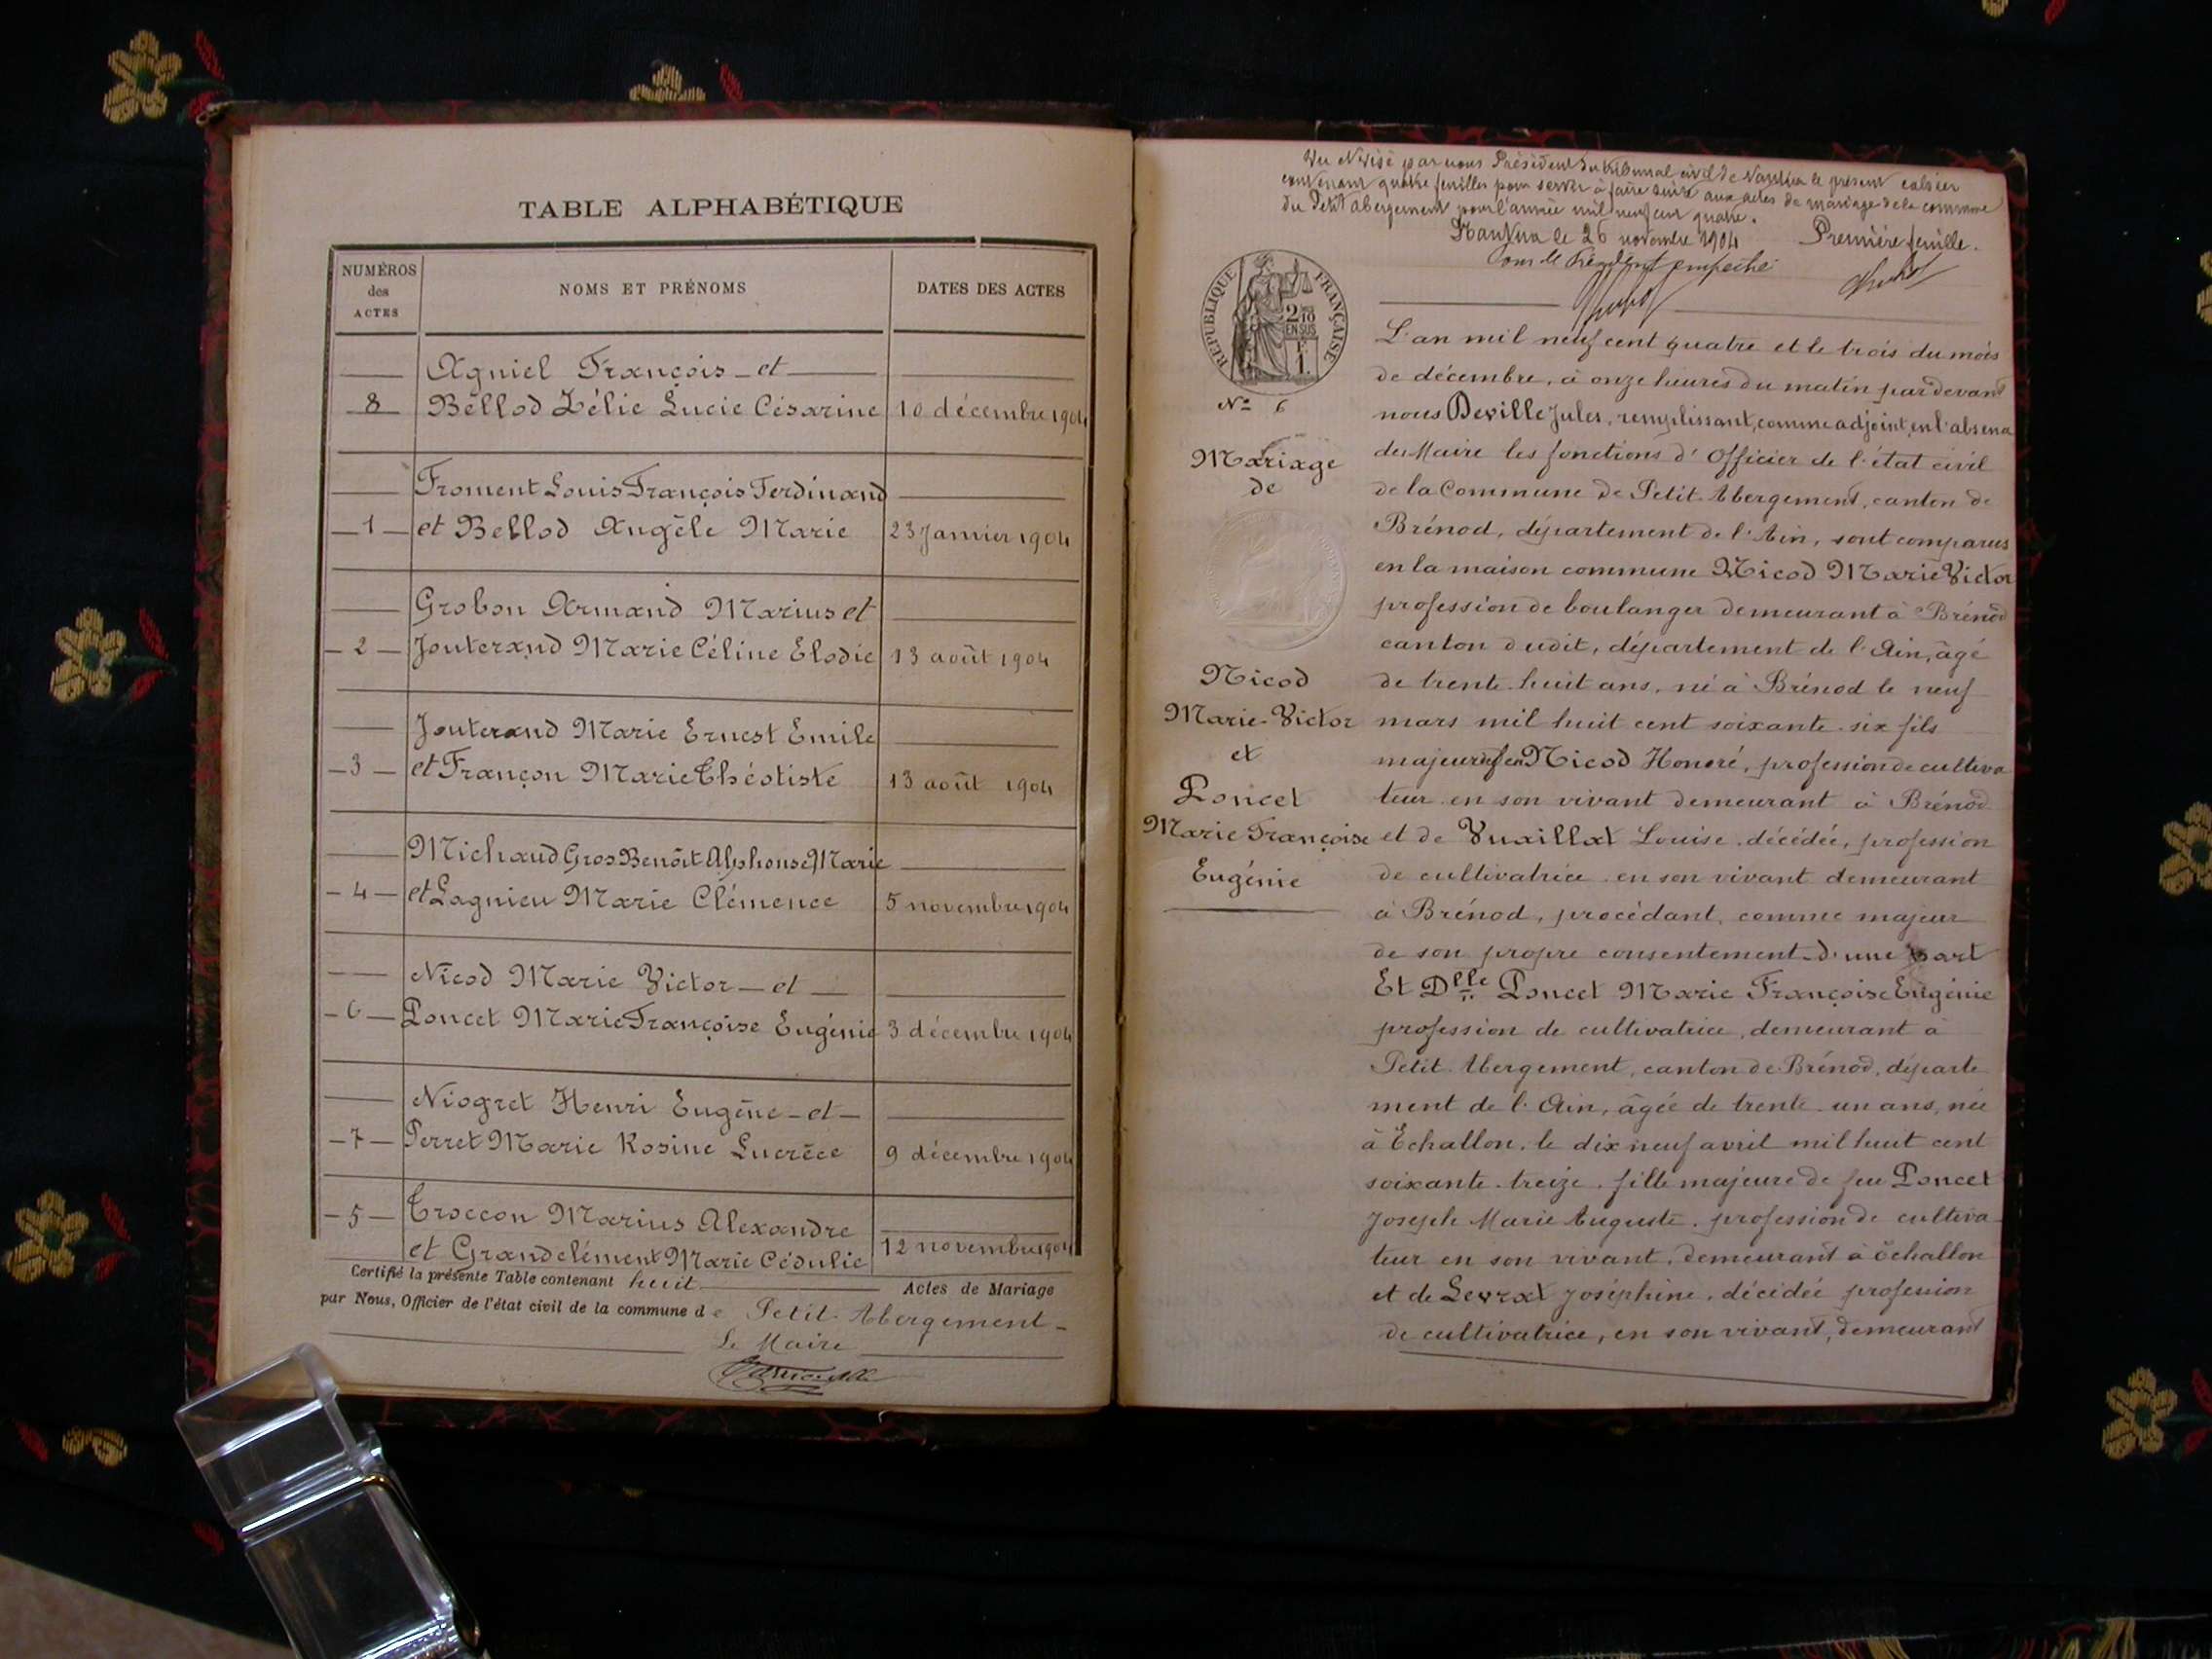 TABLE ALPHABÉTIQUE
NUMÉROS
des
ACTES
NOMS ET PRÉNOMS
DATES DES ACTES
Agniel François - et
8 Bellod Zélie Lucie Césarine 10 décembre 1904
Froment Louis François Ferdinand
1 et Bellod Angèle Marie 23 Janvier 1904
Grobon Armand Marius et
2 Jouterand Marie Céline Elodie 13 août 1904
Jouterand Marie Ernest Emile
3 et Françon Marie Théotiste 13 août 1904
Michaud Gros Benoît Alphonse Marie
4 et Lagnieu Marie Clémence 5 novembre 1904
Nicod Marie Victor - et
6 Poncet Marie Françoise Eugénie 3 décembre 1904
Niogret Henri Eugène - et -
7 Perret Marie Rosine Lucrèce 9 décembre 1904
5 Troccon Marius Alexandre
et Grandclément Marie Cédulie 12 novembre 1904
Certifié la présente Table contenant huit Actes de Mariage
par Nous, Officier de l'état civil de la commune de Petit-Abergement -
Le Maire
Vu et visé par nous Président du tribunal civil de Nantua le présent cahier
contenant quatre feuilles pour servir à faire suite aux actes de mariage de la commune
du Petit Abergement pour l'année mil neuf cent quatre.
Nantua le 26 novembre 1904 Première feuille.
Pour le Président empêché
RÉPUBLIQUE FRANÇAISE
2/10
EN SUS
1 F.
N° 6
Mariage
de
Nicod
Marie-Victor
et
Poncet
Marie Françoise
Eugénie
L'an mil neuf cent quatre et le trois du mois
de décembre, à onze heures du matin par devant
nous Deville Jules, remplissant, comme adjoint, en l'absence
du Maire les fonctions d'Officier de l'état civil
de la Commune de Petit-Abergement, canton de
Brénod, département de l'Ain, sont comparus
en la maison commune Nicod Marie Victor
profession de boulanger demeurant à Brénod
canton dudit, département de l'Ain, âgé
de trente-huit ans, né à Brénod le neuf
mars mil huit cent soixante-six fils
majeur de feu Nicod Honoré, profession de cultiva
teur en son vivant demeurant à Brénod
et de Vuaillat Louise, décédée, profession
de cultivatrice en son vivant demeurant
à Brénod, procédant, comme majeur
de son propre consentement - d'une part
Et Dlle Poncet Marie Françoise Eugénie
profession de cultivatrice, demeurant à
Petit-Abergement, canton de Brénod, départe
ment de l'Ain, âgée de trente-un ans, née
à Echallon, le dix neuf avril mil huit cent
soixante-treize, fille majeure de feu Poncet
Joseph Marie Auguste, profession de cultiva-
teur en son vivant, demeurant à Echallon
et de Levrat Joséphine, décédée profession
de cultivatrice, en son vivant, demeurant